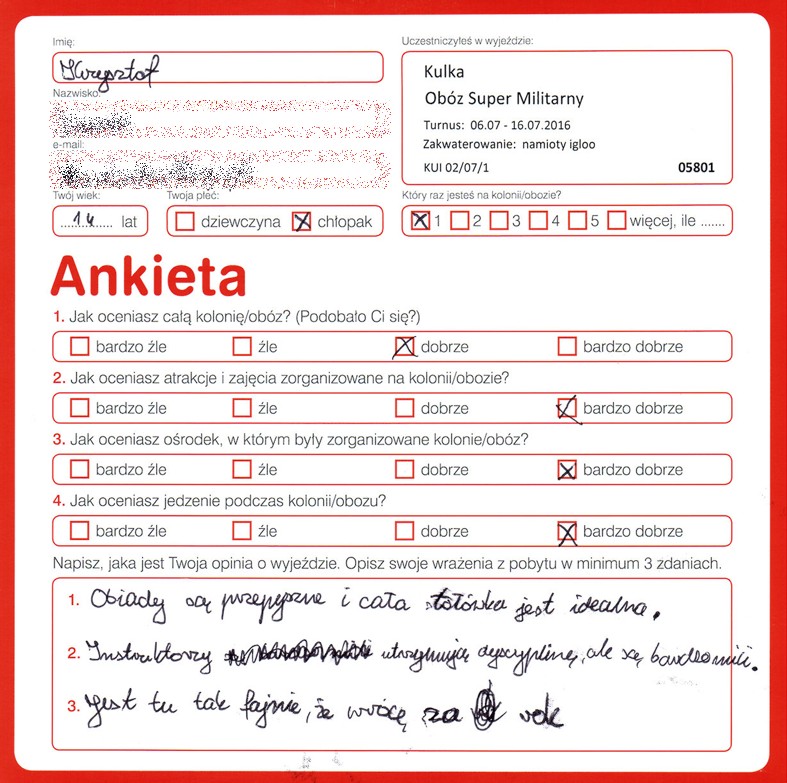 Imię:
Krzysztof
Nazwisko:
e-mail:
Twój wiek:
14 lat
Twoja płeć:
dziewczyna chłopak
Uczestniczyłeś w wyjeździe:
Kulka
Obóz Super Militarny
Turnus: 06.07 - 16.07.2016
Zakwaterowanie: namioty igloo
KUI 02/07/1 05801
Który raz jesteś na kolonii/obozie?
1 2 3 4 5 więcej, ile .......
Ankieta
1. Jak oceniasz całą kolonię/obóz? (Podobało Ci się?)
bardzo źle źle dobrze bardzo dobrze
2. Jak oceniasz atrakcje i zajęcia zorganizowane na kolonii/obozie?
bardzo źle źle dobrze bardzo dobrze
3. Jak oceniasz ośrodek, w którym były zorganizowane kolonie/obóz?
bardzo źle źle dobrze bardzo dobrze
4. Jak oceniasz jedzenie podczas kolonii/obozu?
bardzo źle źle dobrze bardzo dobrze
Napisz, jaka jest Twoja opinia o wyjeździe. Opisz swoje wrażenia z pobytu w minimum 3 zdaniach.
1. Obiady są przepyszne i cała stołówka jest idealna.
2. Instruktorzy utrzymują dyscyplinę, ale są bardzo mili.
3. Jest tu tak fajnie, że wrócę za rok